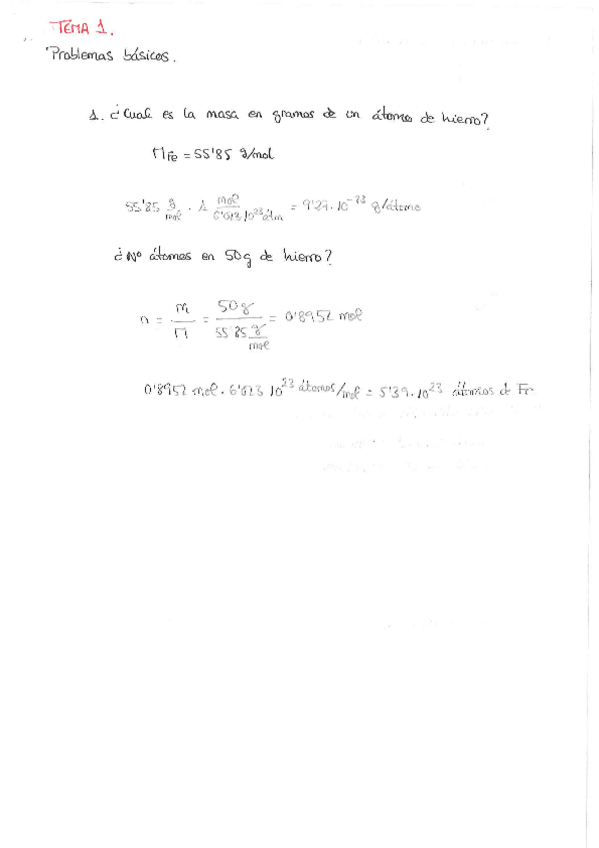 TEMA 1.
Problemas básicos.
1. ¿Cual es la masa en gramos de un átomo de hierro?
M Fe = 55'85 g/mol
55'85 g/mol · 1 mol/6'023 10^23 átm = 9'27·10^-23 g/átomo
¿Nº átomos en 50g de hierro?
n = m/M = 50g/55'85 g/mol = 0'8952 mol
0'8952 mol · 6'023 10^23 átomos/mol = 5'39·10^23 átomos de Fe